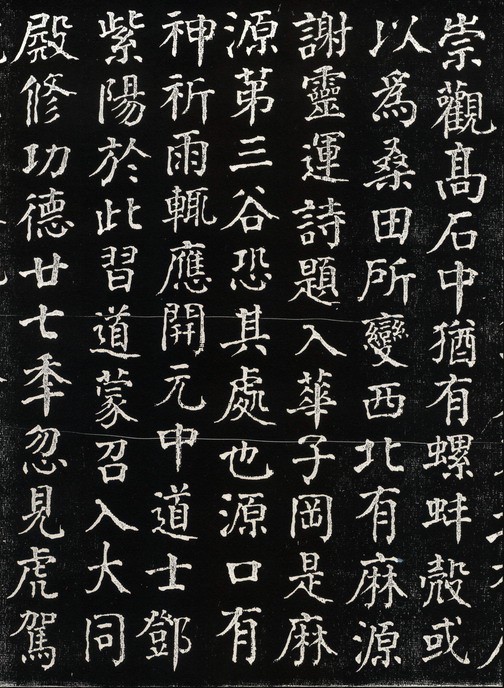 崇觀髙石中猶有螺蚌殼或
以為桑田所變西北有麻源
謝靈運詩題入華子岡是麻
源苐三谷恐其處也源口有
神祈雨輒應開元中道士鄧
紫陽於此習道蒙召入大同
殿修功德廿七年忽見虎駕